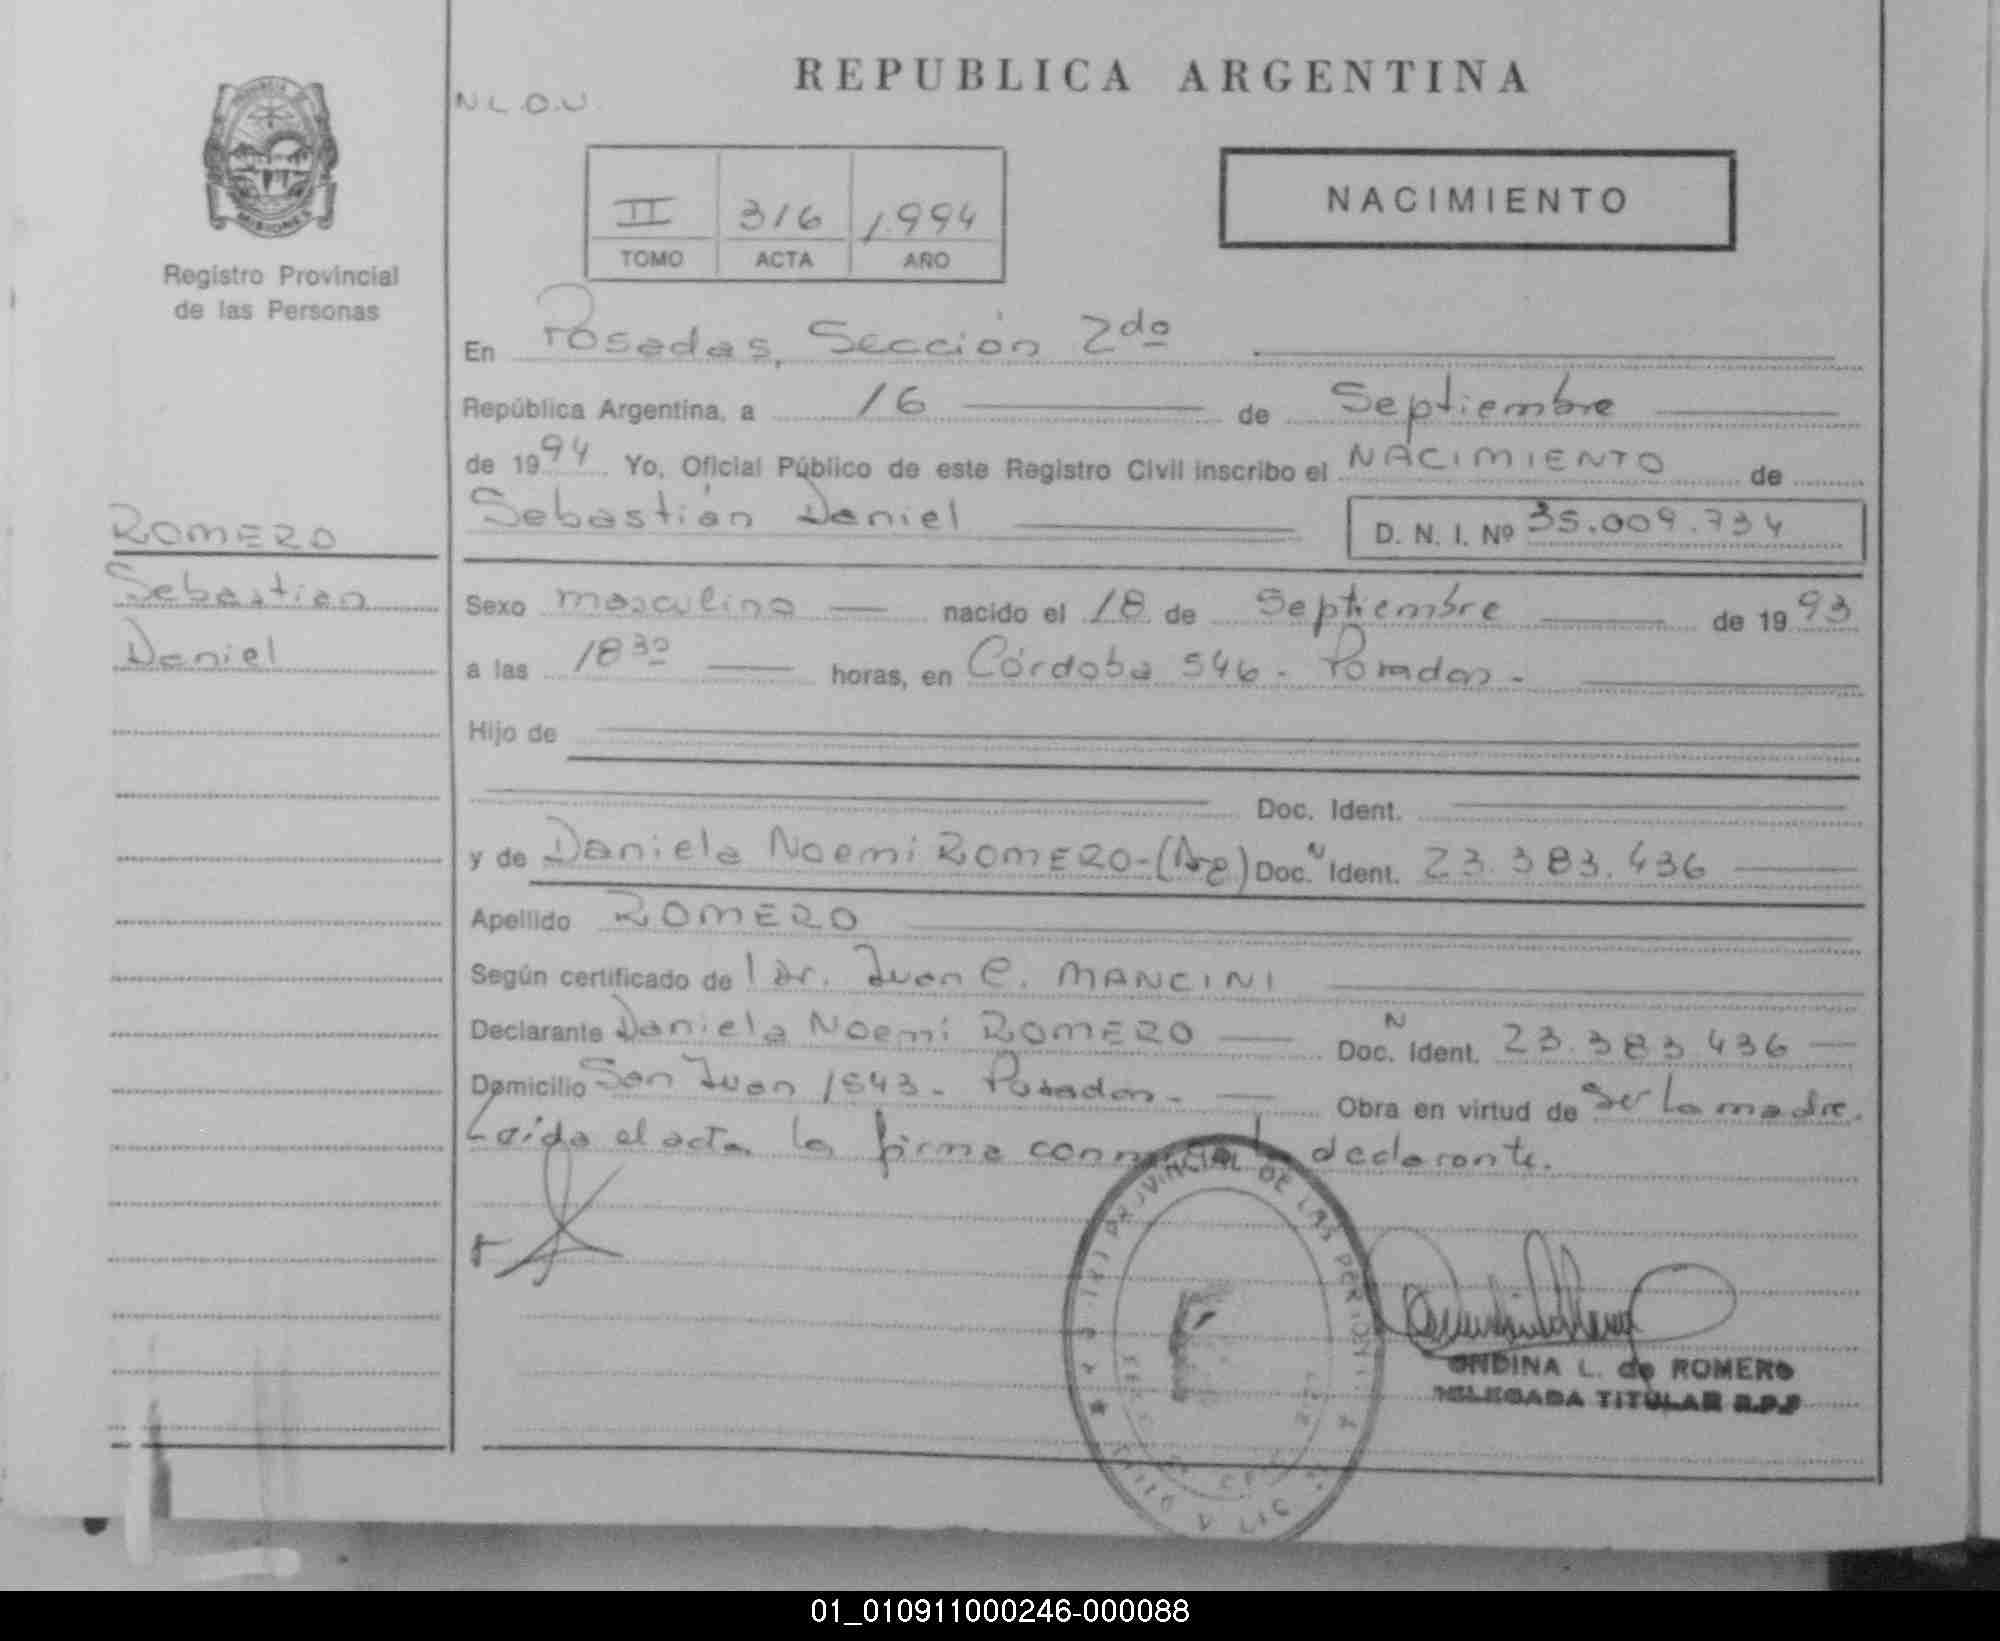 REPUBLICA ARGENTINA
N L.O.U
NACIMIENTO
II 316 1.994
TOMO ACTA AÑO
MISIONES
Registro Provincial
de las Personas
En Posadas, Sección 2da
República Argentina, a 16 de Septiembre
de 1994 Yo, Oficial Público de este Registro Civil inscribo el NACIMIENTO de
Sebastián Daniel D. N. I. Nº 35.009.734
ROMERO
Sebastian
Daniel
Sexo masculino nacido el 18 de Septiembre de 1993
a las 18 30 horas, en Córdoba 546 - Posadas -
Hijo de
Doc. Ident.
y de Daniela Noemi ROMERO-(Arg) Doc. N Ident. 23.383.436
Apellido ROMERO
Según certificado de l Dr. Juan C. MANCINI
Declarante Daniela Noemi ROMERO N Doc. Ident. 23.383 436
Domicilio San Juan 1543 - Posadas - Obra en virtud de Ser la madre.
Leida el acta la firma conmigo la declarante.
PROVINCIAL DE LAS PERSONAS
ONDINA L. de ROMERO
DELEGADA TITULAR R.P.P
01_010911000246-000088